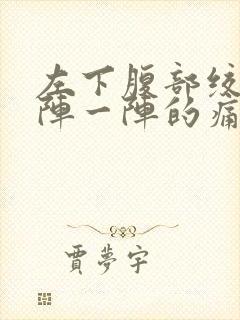 左下腹部绞
陣一陣的痛
賈夢宇